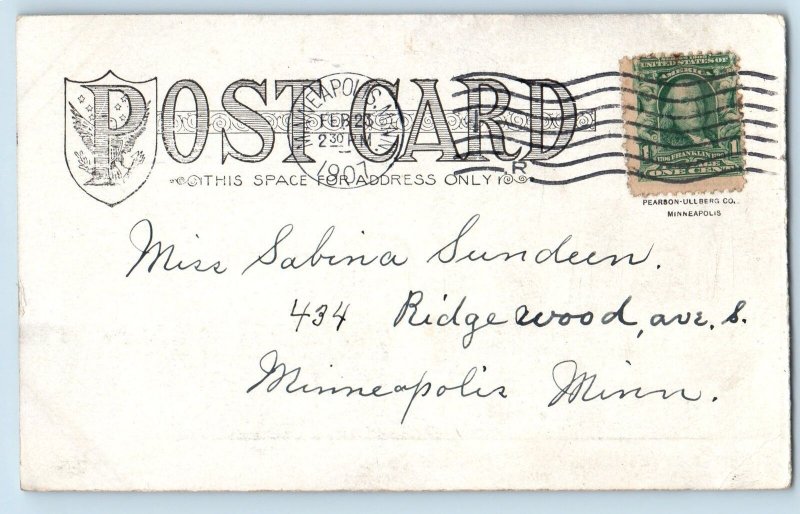 POST CARD
MINNEAPOLIS, MINN.
FEB 23
2 30 P.M.
1907
R
THIS SPACE FOR ADDRESS ONLY
UNITED STATES OF
AMERICA
1 FRANKLIN 1
ONE CENT
PEARSON-ULLBERG CO.,
MINNEAPOLIS
Miss Sabina Sundeen.
434 Ridgewood, ave. S.
Minneapolis Minn.